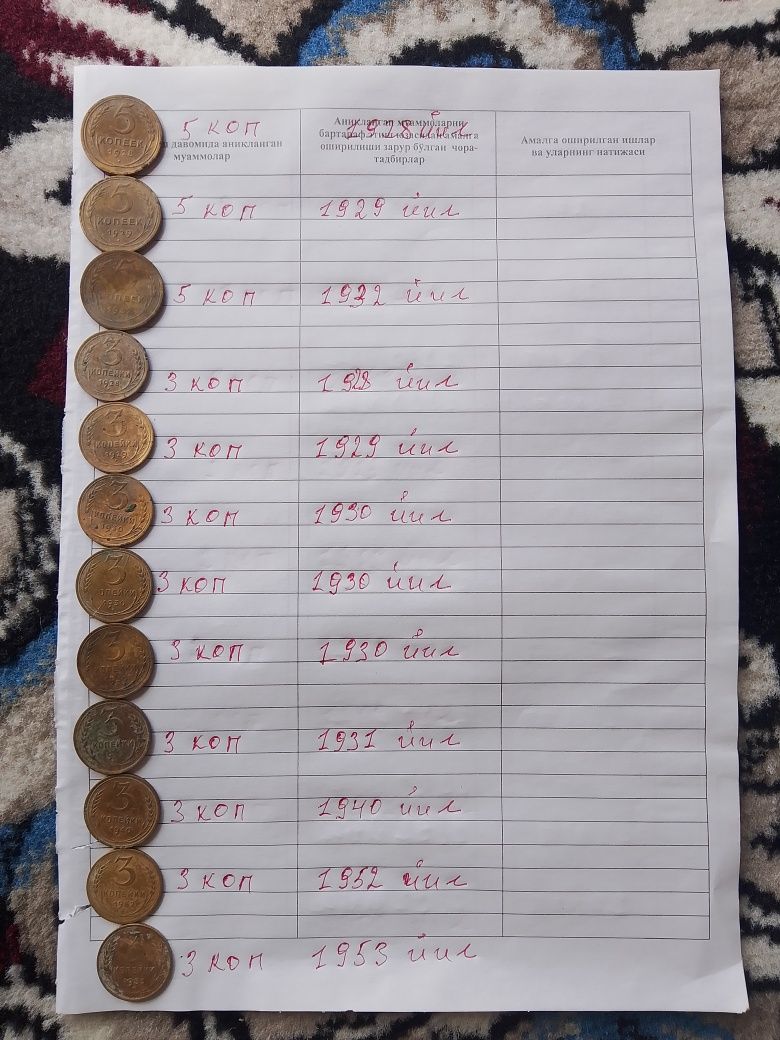 5 коп 1928 йил
давомида аникланган муаммолар
Аникланган муаммоларни бартараф этиш юзасидан амалга оширилиши зарур бўлган чора-тадбирлар
Амалга оширилган ишлар ва уларнинг натижаси
5 КОПЕЕК
5 КОПЕЕК 1929
5 коп 1929 йил
5 КОПЕЕК
5 коп 1932 йил
3 КОПЕЙКИ 1928
3 коп 1928 йил
3 КОПЕЙКИ 1929
3 коп 1929 йил
3 КОПЕЙКИ
3 коп 1930 йил
3 КОПЕЙКИ 1930
3 коп 1930 йил
3
3 коп 1930 йил
3 КОПЕЙКИ
3 коп 1931 йил
3 КОПЕЙКИ
3 коп 1940 йил
3 КОПЕЙКИ
3 коп 1952 йил
3 КОПЕЙКИ
3 коп 1953 йил